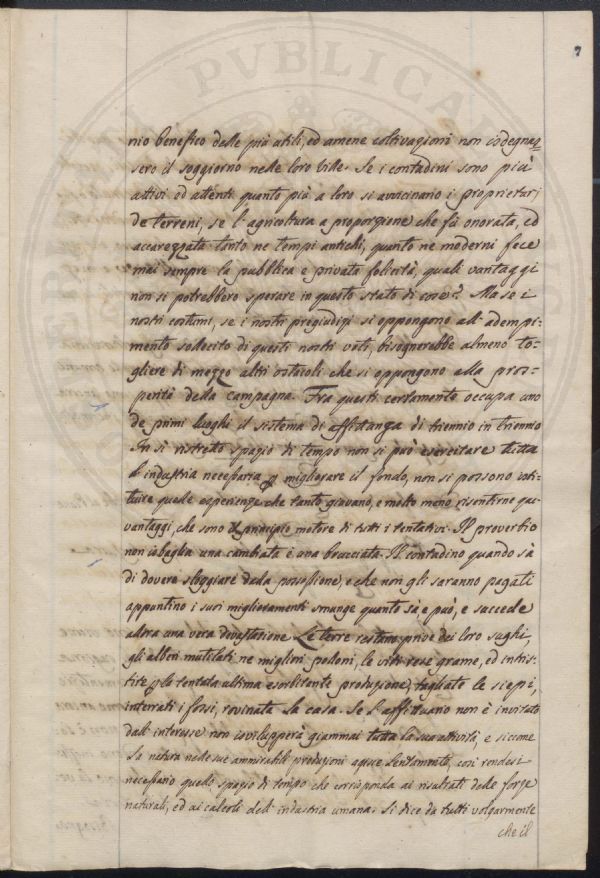 7
nio benefico delle più utili, ed amene coltivazioni non isdegnas=
sero il soggiorno nelle loro Ville. Se i contadini sono più
attivi ed attenti quanto più a loro si avvicinano i proprietarj
de terreni, se l'agricoltura a proporzione che fù onorata, ed
accarezzata tanto ne tempi antichi, quanto ne moderni fece
mai sempre la pubblica e privata felicità, quali vantaggi
non si potrebbero sperare in questo stato di cose? Ma se i
nostri costumi, se i nostri pregiudizj si oppongono all'adempi=
mento sollecito di questi nostri voti, bisognerebbe almeno to=
gliere di mezzo altri ostacoli che si oppongono alla pros=
perità della campagna. Fra questi certamente occupa uno
de primi luoghi il sistema di affittanza di triennio in triennio
In sì ristretto spazio di tempo non si può esercitare tutta
l'industria necessaria p migliorare il fondo, non si possono isti=
tuire quelle esperienze che tanto giovano, e molto meno risentirne que
vantaggi, che sono il principio motore di tutti i tentativi. Il proverbio
non isbaglia una cambiata è una bruciata. Il contadino quando sà
di dovere sloggiare dalla possessione, e che non gli saranno pagati
appuntino i suoi miglioramenti smunge quanto sà e può, e succede
allora una vera devastazione. Le terre restano prive dei loro sughi,
gli alberi mutilati ne migliori pedoni, le viti rese grame, ed intris=
tite p la tentata ultima esorbitante produzione, tagliate le siepi,
interrati i fossi, rovinata la casa. Se l'affittuario non è invitato
dall'interesse non isvilupperà giammai tutta la sua attività, e siccome
la natura nelle sue ammirabili produzioni agisce lentamente, così rendesi
necessario quello spazio di tempo che corrisponda ai risultati delle forze
naturali, ed ai calcoli dell'industria umana. Si dice da tutti volgarmente
che il